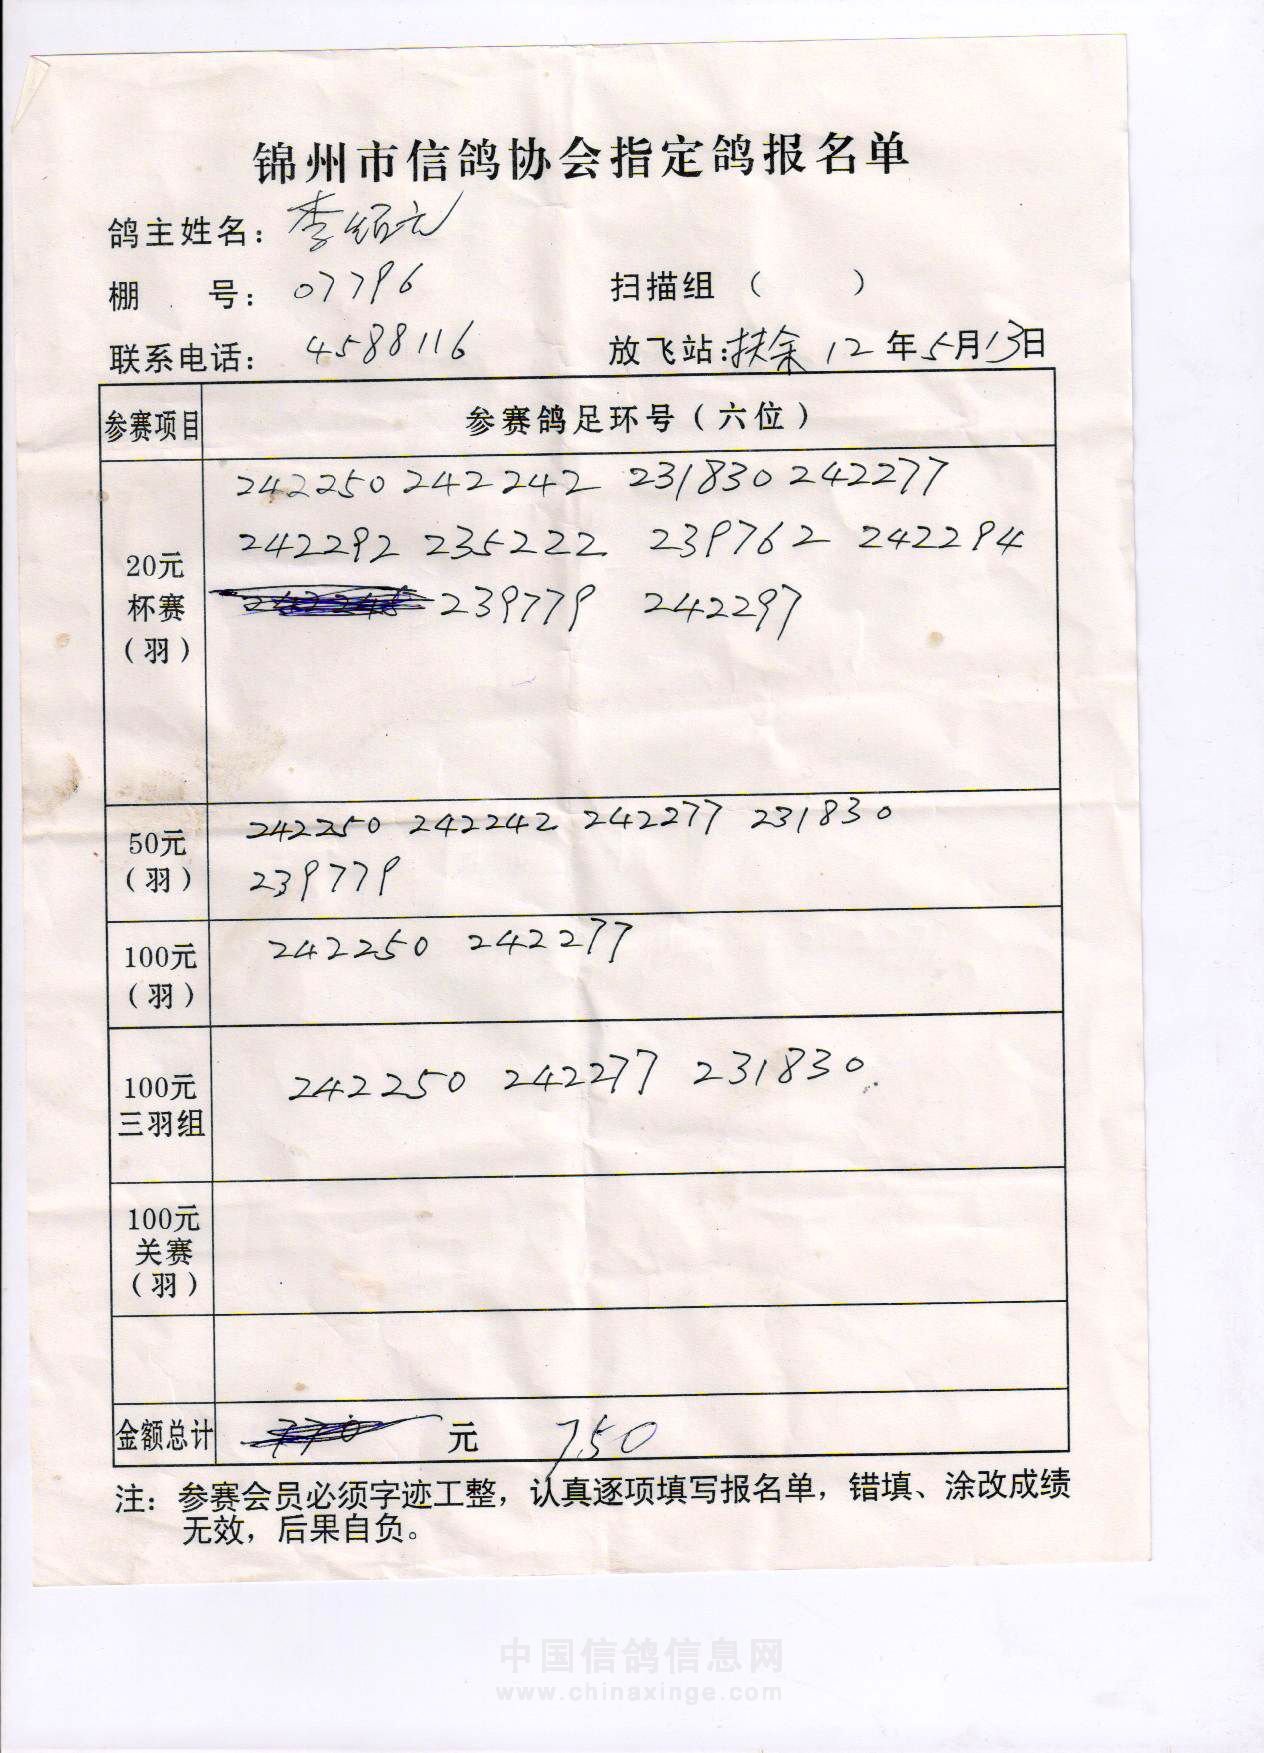 锦州市信鸽协会指定鸽报名单
鸽主姓名：李绍元
棚 号：07796 扫描组（ ）
联系电话：4588116 放飞站：扶余 12年5月13日
参赛项目 参赛鸽足环号（六位）
20元
杯赛
（羽）
242250 242242 231830 242277
242292 235222 239762 242294
239779 242297
50元
（羽）
242250 242242 242277 231830
239779
100元
（羽）
242250 242277
100元
三羽组
242250 242277 231830
100元
关赛
（羽）
金额总计 770 元 750
注：参赛会员必须字迹工整，认真逐项填写报名单，错填、涂改成绩
无效，后果自负。
中国信鸽信息网
www.chinaxinge.com